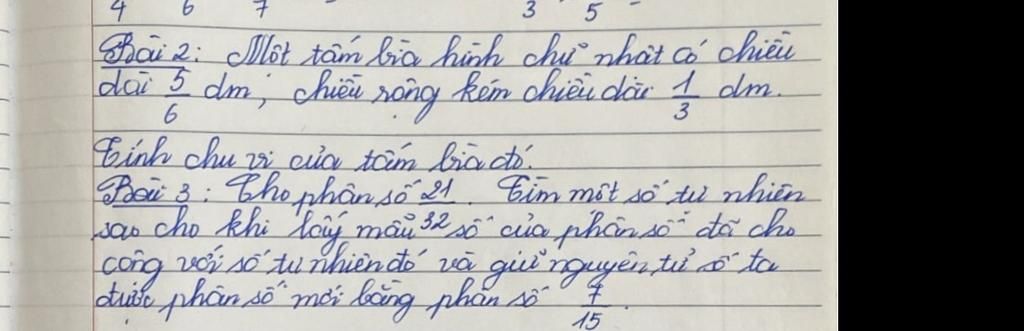 4 6 7 3 5
Bài 2: Một tấm bìa hình chữ nhật có chiều
dài 5/6 dm, chiều rộng kém chiều dài 1/3 dm.
Tính chu vi của tấm bìa đó.
Bài 3: Cho phân số 21/32. Tìm một số tự nhiên
sao cho khi lấy mẫu số của phân số đã cho
cộng với số tự nhiên đó và giữ nguyên tử số ta
được phân số mới bằng phân số 7/15.